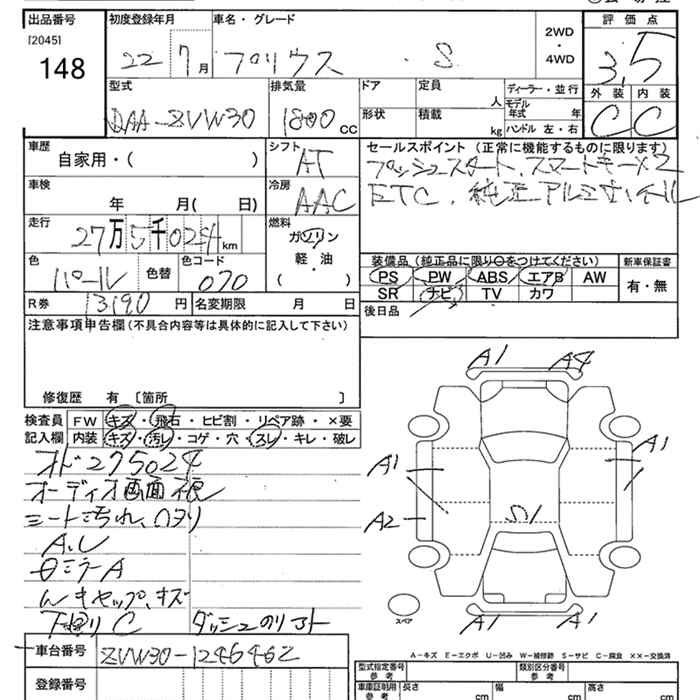 出品番号
[2045]
148
初度登録年月
22 7月
車名・グレード
プリウス ・ S
2WD
・
4WD
評価点
3.5
外装 内装
C C
型式
DAA-ZVW30
排気量
1800 CC
ドア
形状
定員 人
積載 kg
ディーラー・並行
モデル年式 年
ハンドル 左・右
車歴
自家用・( )
シフト
AT
車検
年 月( 日)
冷房
AAC
走行
27万5千024km
燃料
ガソリン
軽・油
( )
色
パール
色替
色コード
070
R券 13190 円
名変期限 月 日
セールスポイント(正常に機能するものに限ります)
プッシュスタート、スマートキー×2
ETC、純正アルミホイール
装備品(純正品に限り○をつけてください)
PS PW ABS エアB AW
SR ナビ TV カワ
新車保証書
有・無
後日品
注意事項申告欄(不具合内容等は具体的に記入して下さい)
修復歴 有 〔箇所 〕
検査員記入欄
FW キズ・飛石・ヒビ割・リペア跡・×要
内装 キズ・汚レ・コゲ・穴・スレ・キレ・破レ
オド275024
オーディオ画面
シート汚れ、
A.U
ミラーA
キャップ、キズ
下廻りC
A1 A4
A1 A1
A2
S1
A1 A1
スペア
A-キズ E-エクボ U-凹み W-補修跡 S-サビ C-腐食 XX-交換済
車台番号
ZVW30-1246462
登録番号
型式指定番号
参考
類別区分番号
参考
車庫証明用
参考
長さ cm
幅 cm
高さ cm